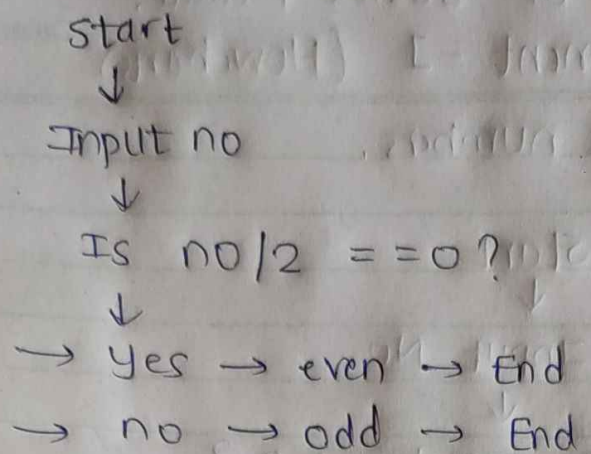 start
↓
Input no
↓
Is no/2 ==0?
↓
→ Yes → even → End
→ no → odd → End